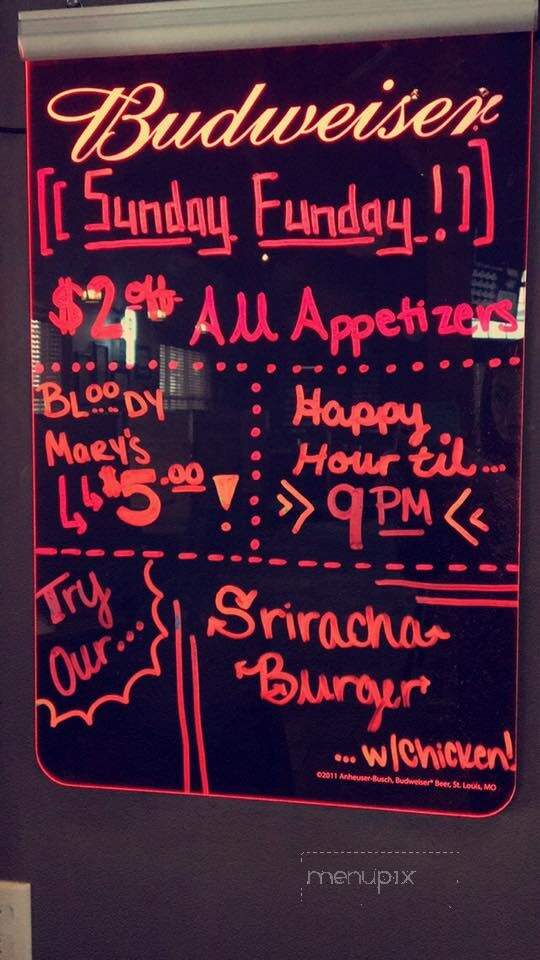 Budweiser
[[Sunday Funday!]]
$2 off All Appetizers
BLOODY
MARY'S
$5.00!
Happy
Hour til...
>> 9 PM <<
Try
Our...
Sriracha
Burger
... w/Chicken!
©2011 Anheuser-Busch, Budweiser® Beer, St. Louis, MO
menupix